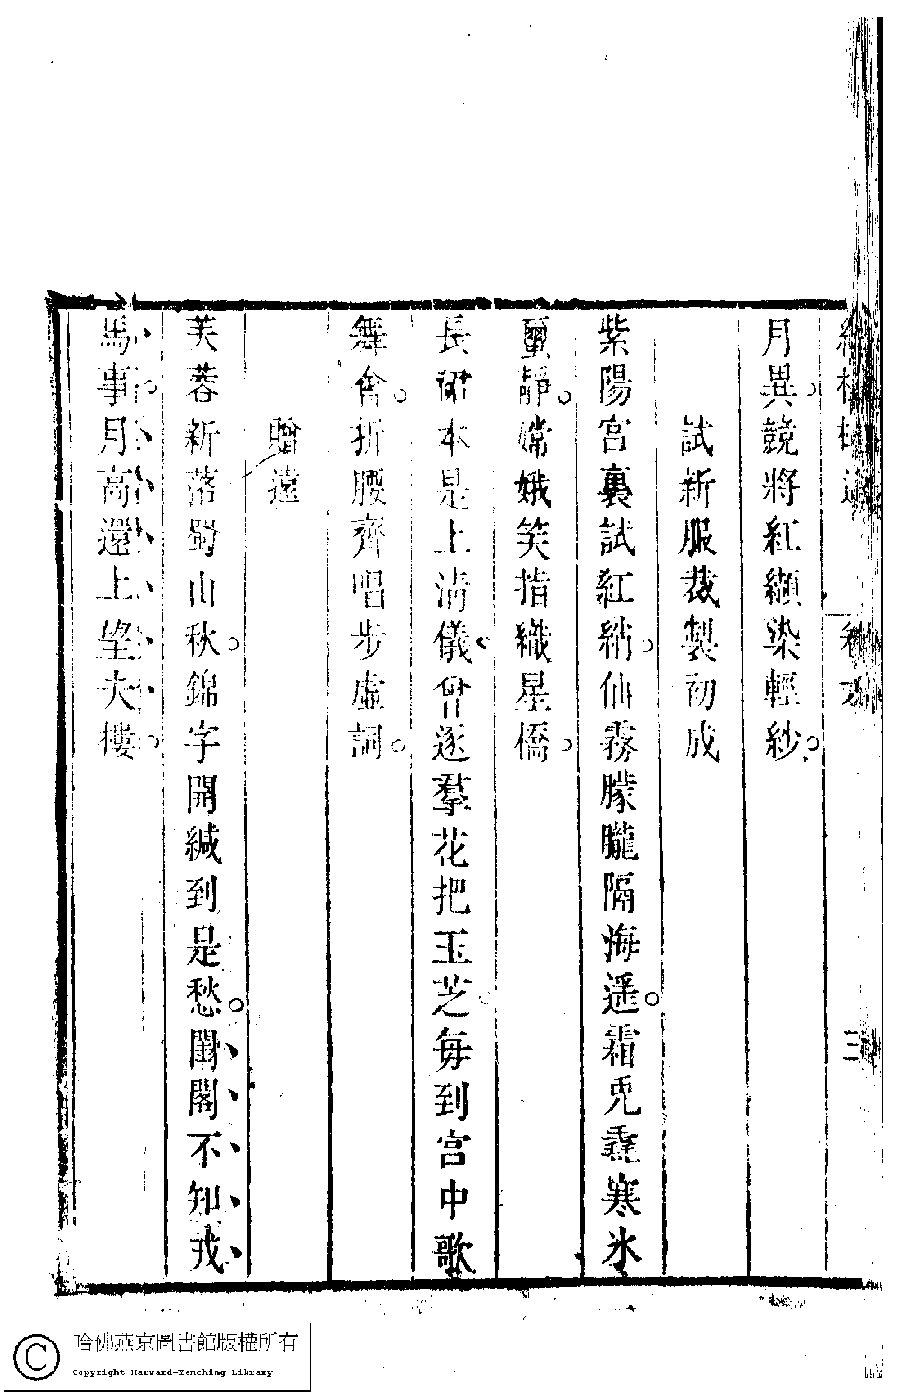 三
月異競將紅纈染輕紗
試新服裁製初成
紫陽宮裏試紅綃仙霧朦朧隔海遥霜兎毳寒氷
蠒靜嫦娥笑指織星僑
長裙本是上清儀曾逐羣花把玉芝每到宮中歌
舞會折腰齊唱步虛詞
贈遠
芙蓉新落蜀山秋錦字開緘到是愁閨閣不知戎
馬事月高還上望夫樓
哈佛燕京圖書館版權所有
Copyright Harvard-Yenching Library